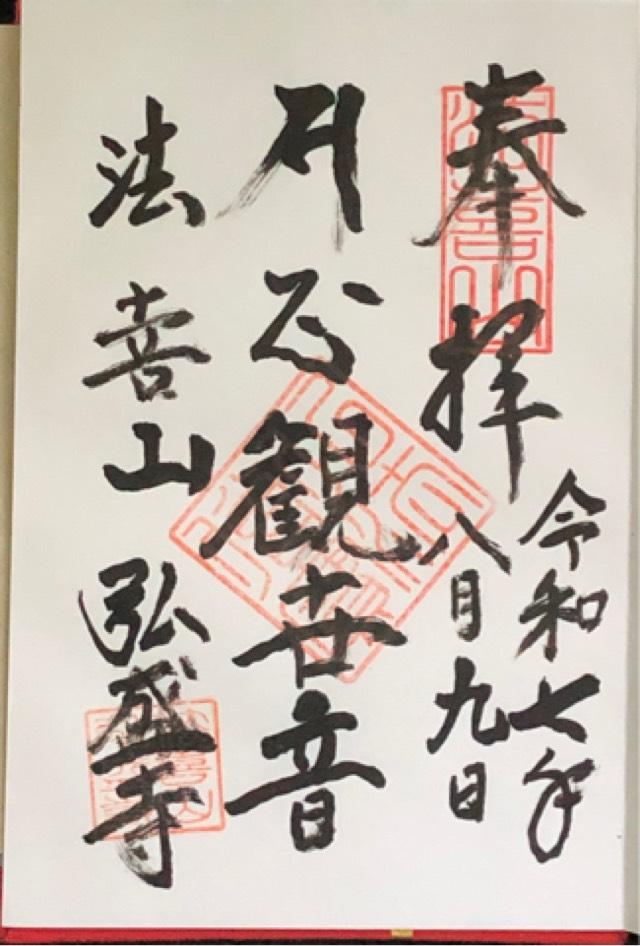 奉拝
令和七年
八月九日
観世音
法喜山
弘盛寺
法喜山